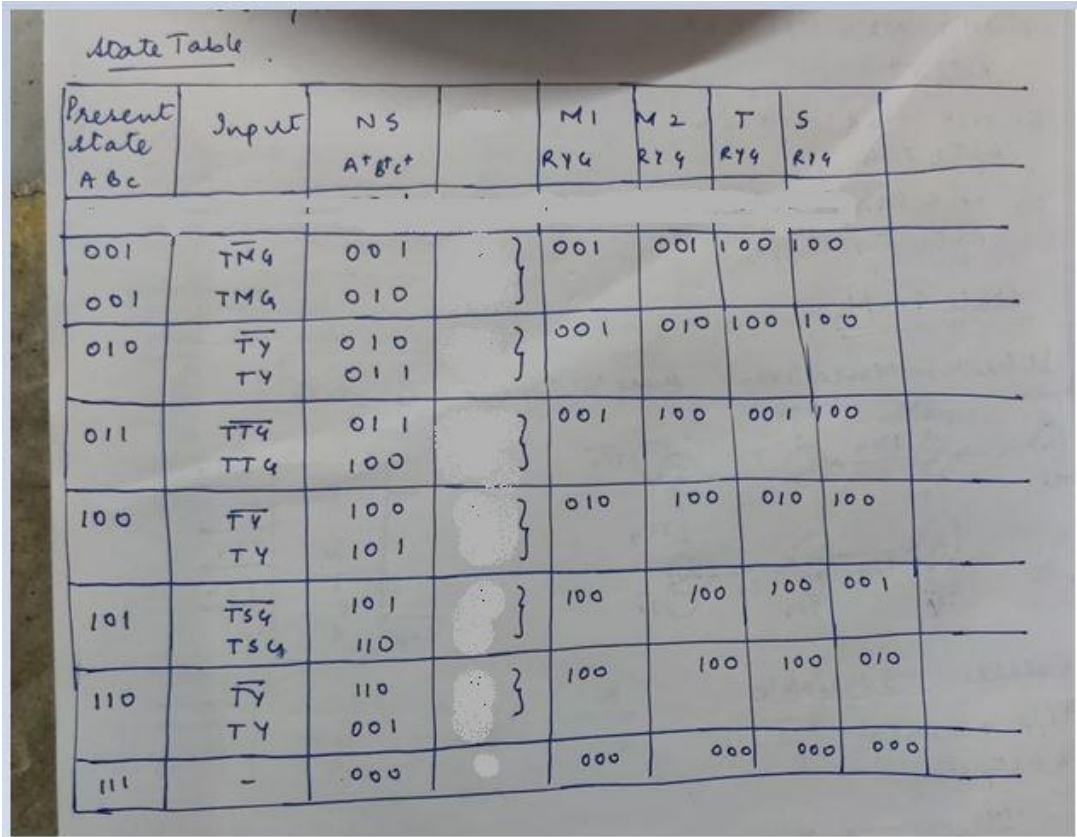 State Table
Present State A B C Input NS A⁺B⁺C⁺ M1 RYG M2 RYG T RYG S RYG
001 T̅M̅G̅ 001 } 001 001 100 100
001 TMG 010
010 T̅Y̅ 010 } 001 010 100 100
TY 011
011 T̅T̅G̅ 011 } 001 100 001 100
TTG 100
100 T̅Y̅ 100 } 010 100 010 100
TY 101
101 T̅S̅G̅ 101 } 100 100 100 001
TSG 110
110 T̅Y̅ 110 } 100 100 100 010
TY 001
111 - 000 000 000 000 000